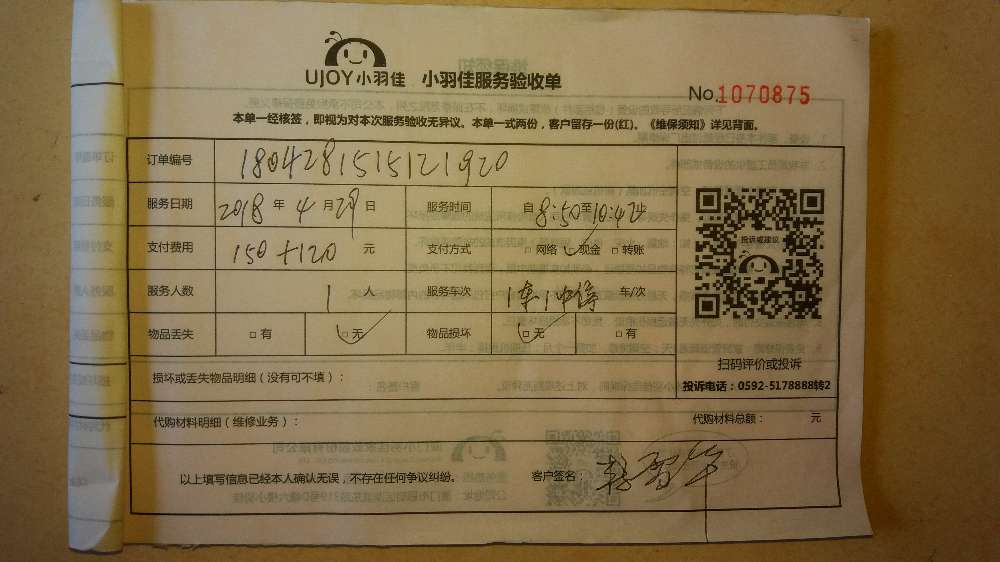 UJOY小羽佳 小羽佳服务验收单
No.1070875
本单一经核签，即视为对本次服务验收无异议。本单一式两份，客户留存一份(红)。《维保须知》详见背面。
订单编号 1804281515121920
服务日期 2018 年 4 月 29 日 服务时间 自 8:50 至 10:42 止
支付费用 150+120 元 支付方式 □ 网络 □ 现金 □ 转账
投诉或建议
服务人数 1 人 服务车次 1车1 车/次
物品丢失 □ 有 □ 无 物品损坏 □ 无 □ 有
扫码评价或投诉
损坏或丢失物品明细（没有可不填）：
投诉电话：0592-5178888转2
代购材料明细（维修业务）： 代购材料总额： 元
以上填写信息已经本人确认无误，不存在任何争议纠纷。 客户签名：